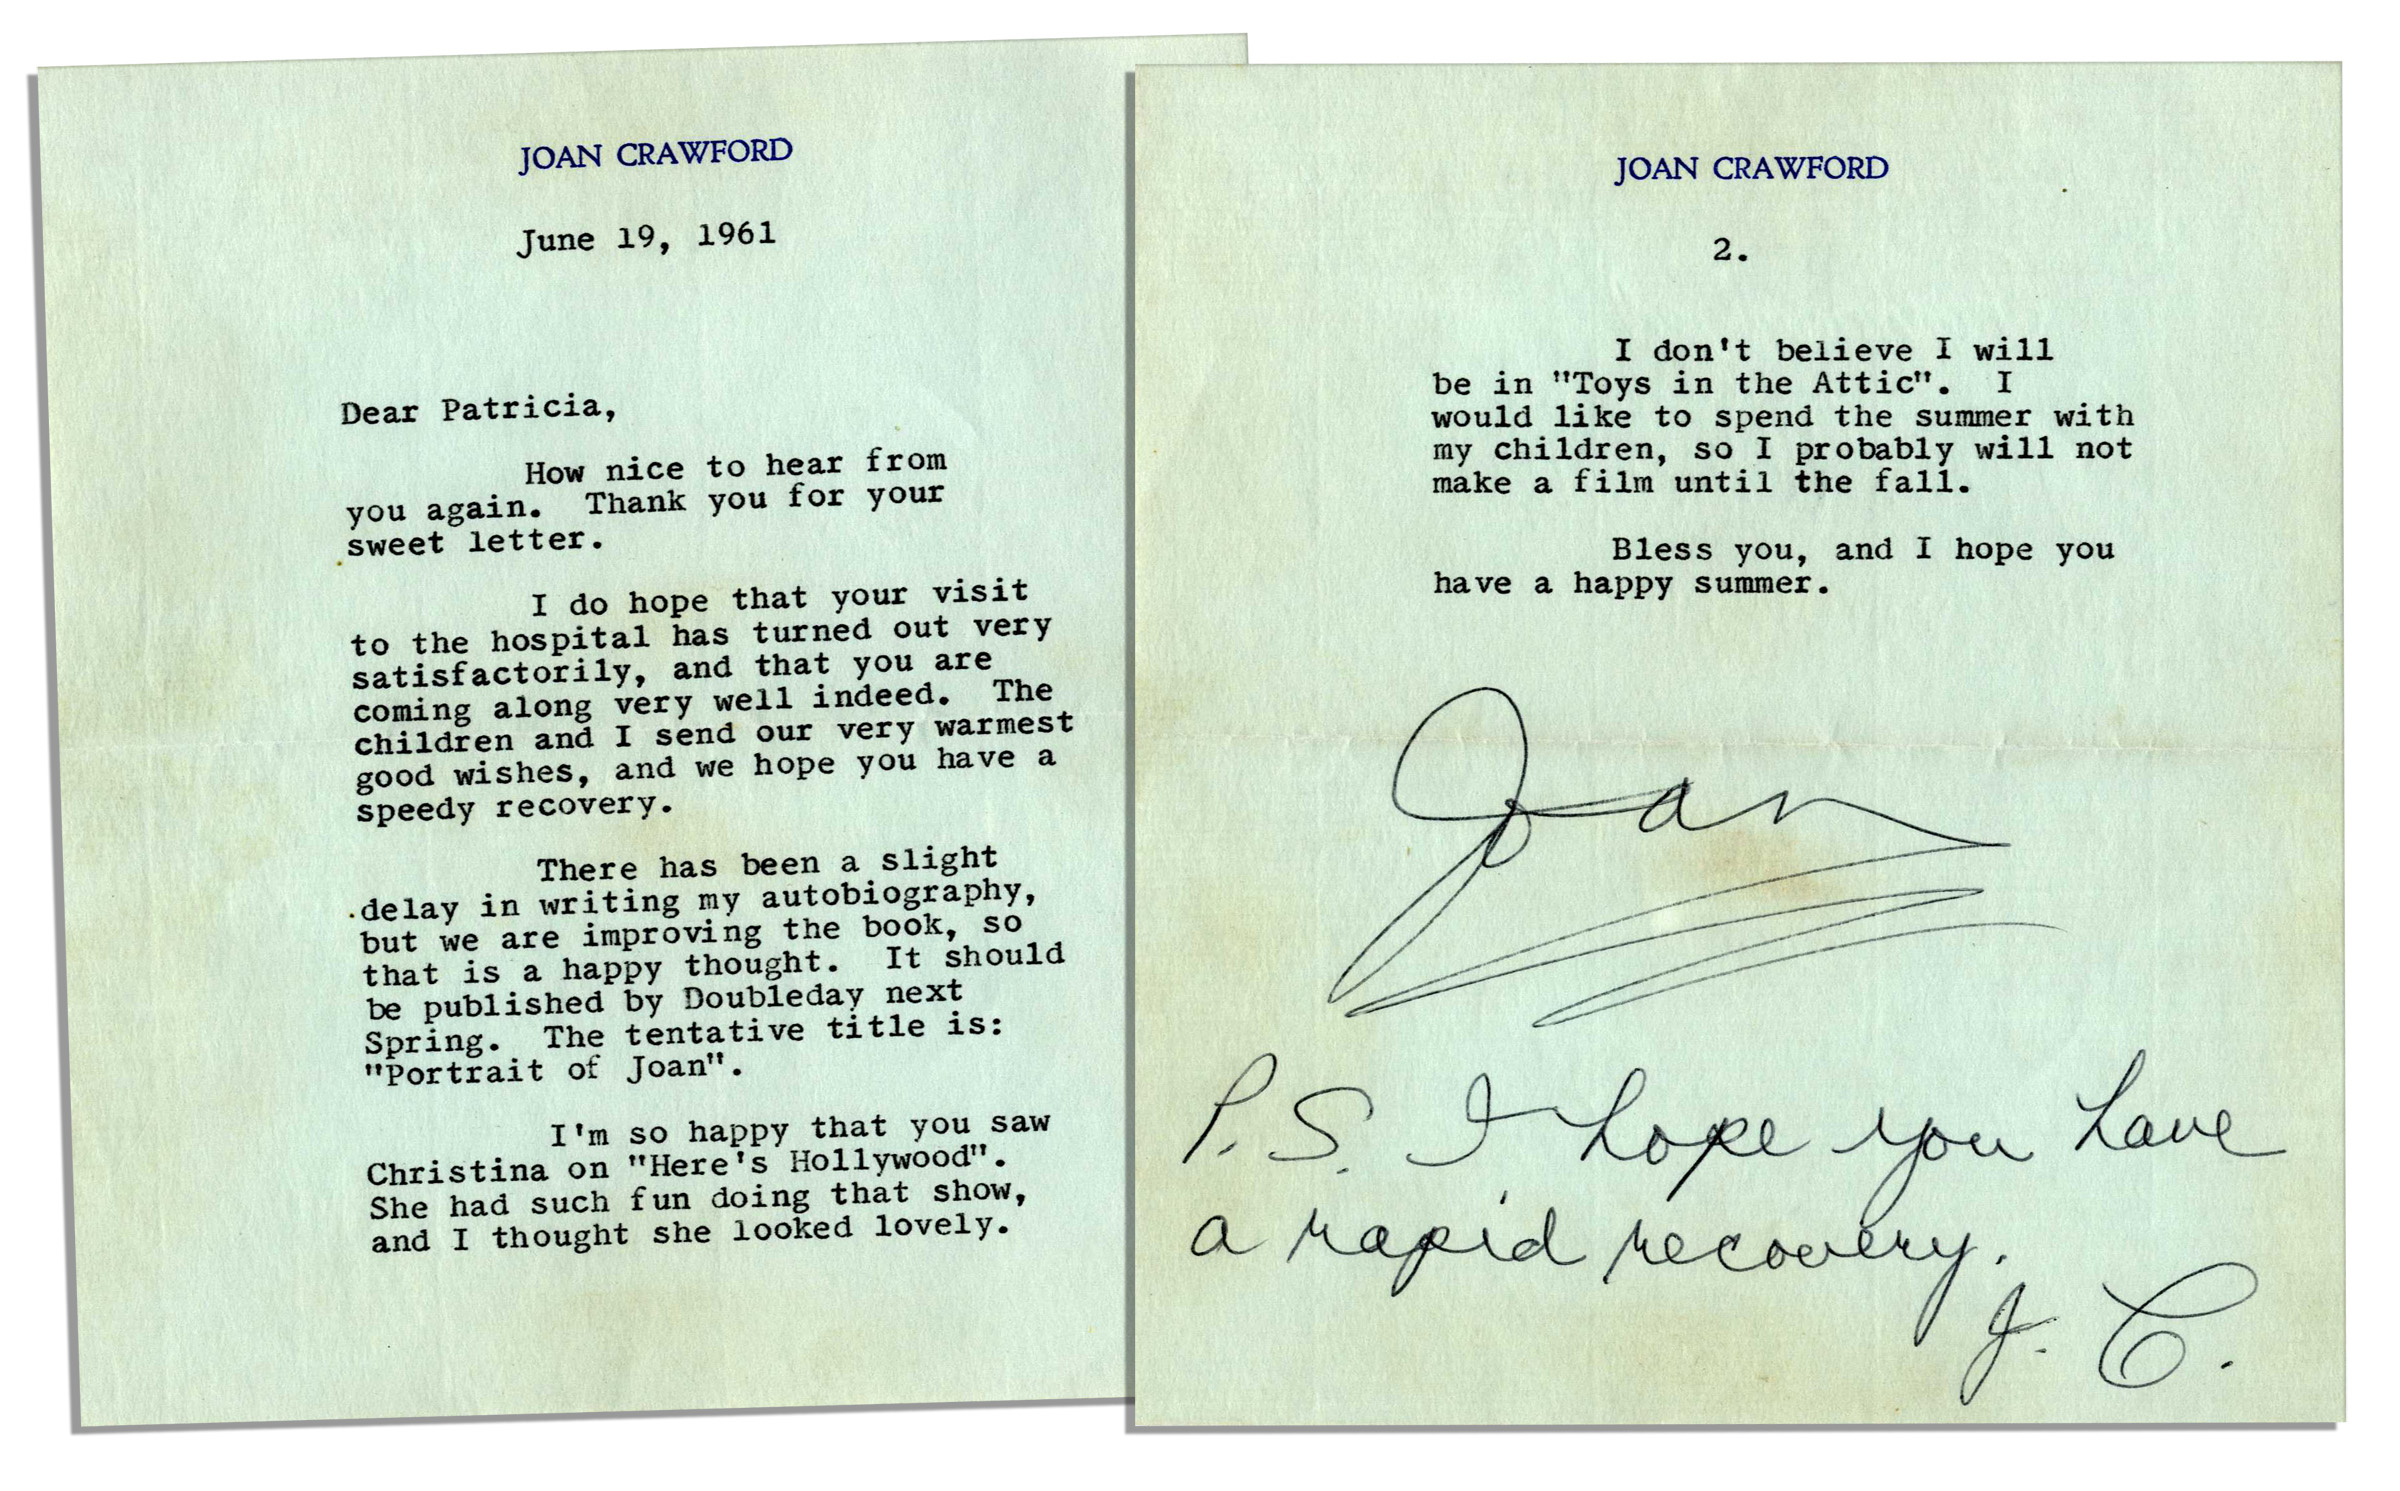 JOAN CRAWFORD
June 19, 1961
Dear Patricia,
How nice to hear from
you again. Thank you for your
sweet letter.
I do hope that your visit
to the hospital has turned out very
satisfactorily, and that you are
coming along very well indeed. The
children and I send our very warmest
good wishes, and we hope you have a
speedy recovery.
There has been a slight
delay in writing my autobiography,
but we are improving the book, so
that is a happy thought. It should
be published by Doubleday next
Spring. The tentative title is:
"Portrait of Joan".
I'm so happy that you saw
Christina on "Here's Hollywood".
She had such fun doing that show,
and I thought she looked lovely.
JOAN CRAWFORD
2.
I don't believe I will
be in "Toys in the Attic". I
would like to spend the summer with
my children, so I probably will not
make a film until the fall.
Bless you, and I hope you
have a happy summer.
Joan
P.S. I hope you have
a rapid recovery.
J. C.